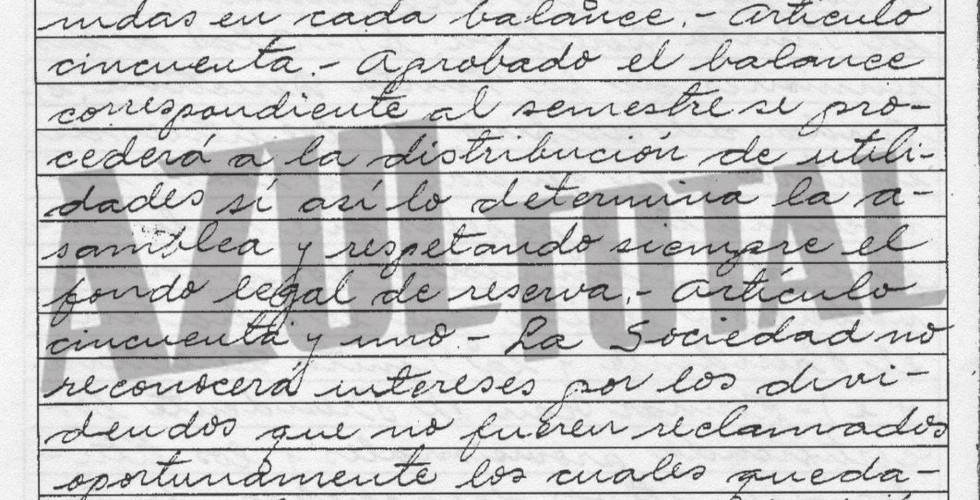 nidas en cada balance.- Artículo
cincuenta.- Aprobado el balance
correspondiente al semestre se pro-
cederá a la distribución de utili-
dades si así lo determina la a-
samblea y respetando siempre el
fondo legal de reserva.- Artículo
cincuenta y uno.- La Sociedad no
reconocerá intereses por los divi-
dendos que no fueren reclamados
oportunamente los cuales queda-
AZUL TOTAL